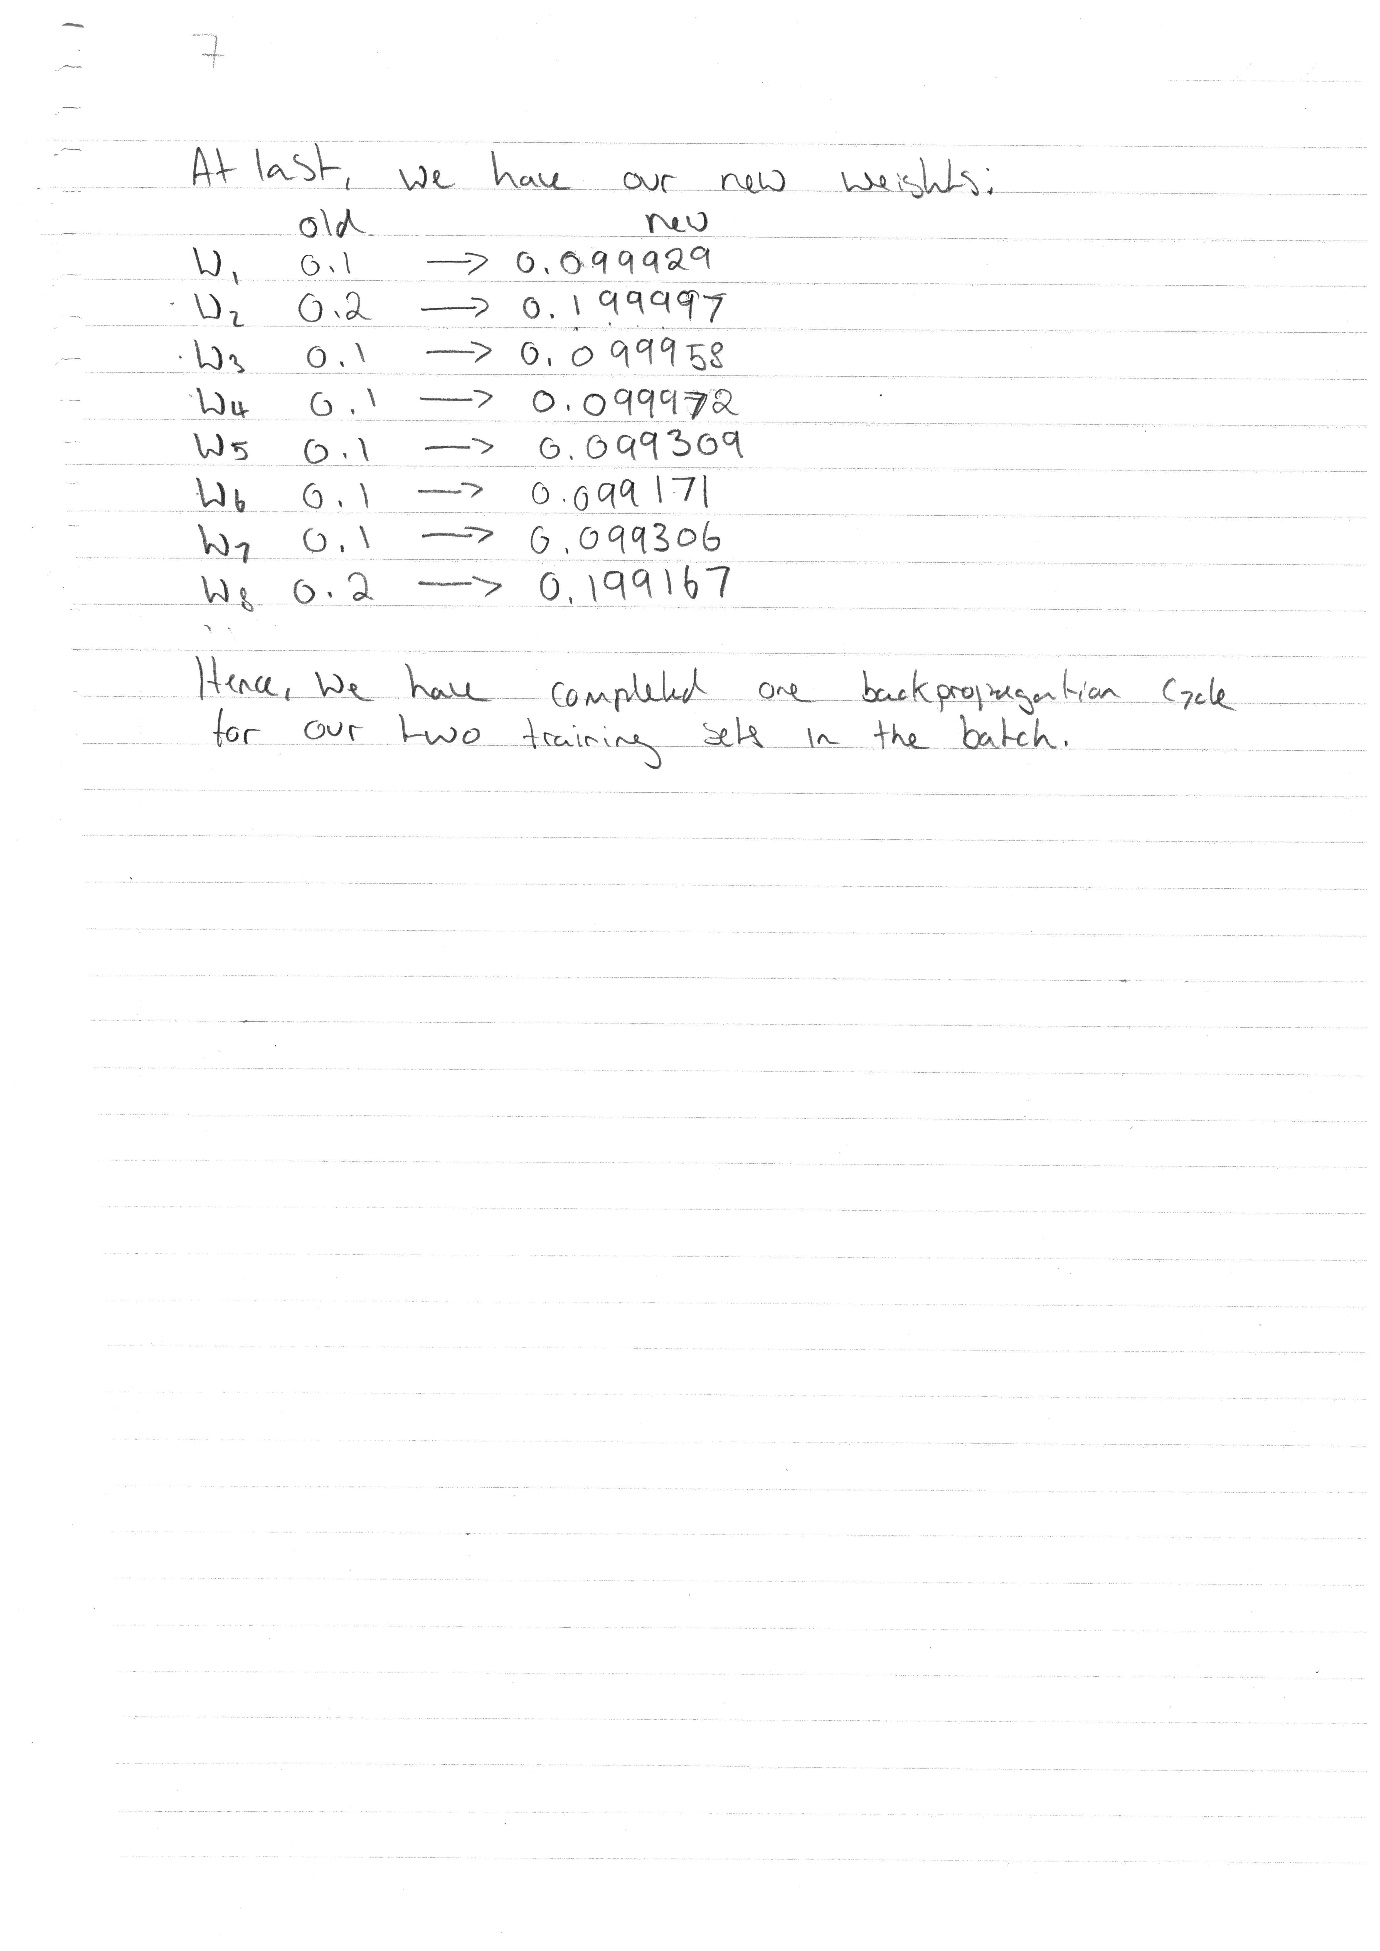 7
At last, we have our new weights:
old new
W1 0.1 → 0.099929
W2 0.2 → 0.199997
W3 0.1 → 0.099958
W4 0.1 → 0.099972
W5 0.1 → 0.099309
W6 0.1 → 0.099171
W7 0.1 → 0.099306
W8 0.2 → 0.199167
Hence, we have completed one backpropagation cycle
for our two training sets in the batch.